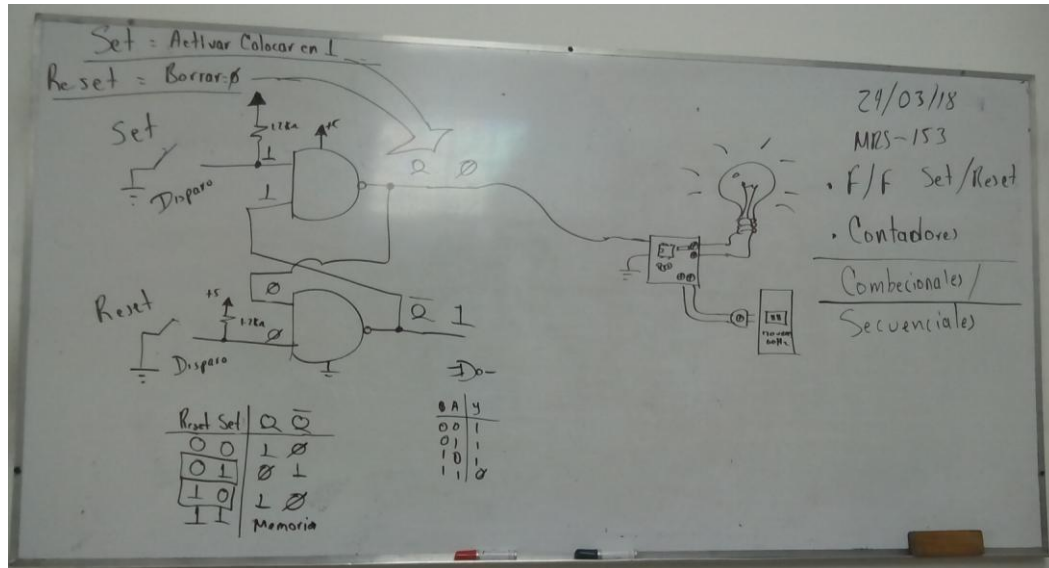 Set = Activar Colocar en 1
Reset = Borrar Ø
Set
Disparo
1.2KΩ
1
1
Q Ø
Reset
Disparo
+5
1.2KΩ
Ø
Ø
Q̅ 1
Reset Set Q Q̅
0 0 1 Ø
0 1 Ø 1
1 0 1 Ø
1 1 Memoria
A y
0 0 1
0 1 1
1 0 1
1 1 Ø
MRS-153
• F/F Set/Reset
• Contadores
Combecionales/
Secuenciales